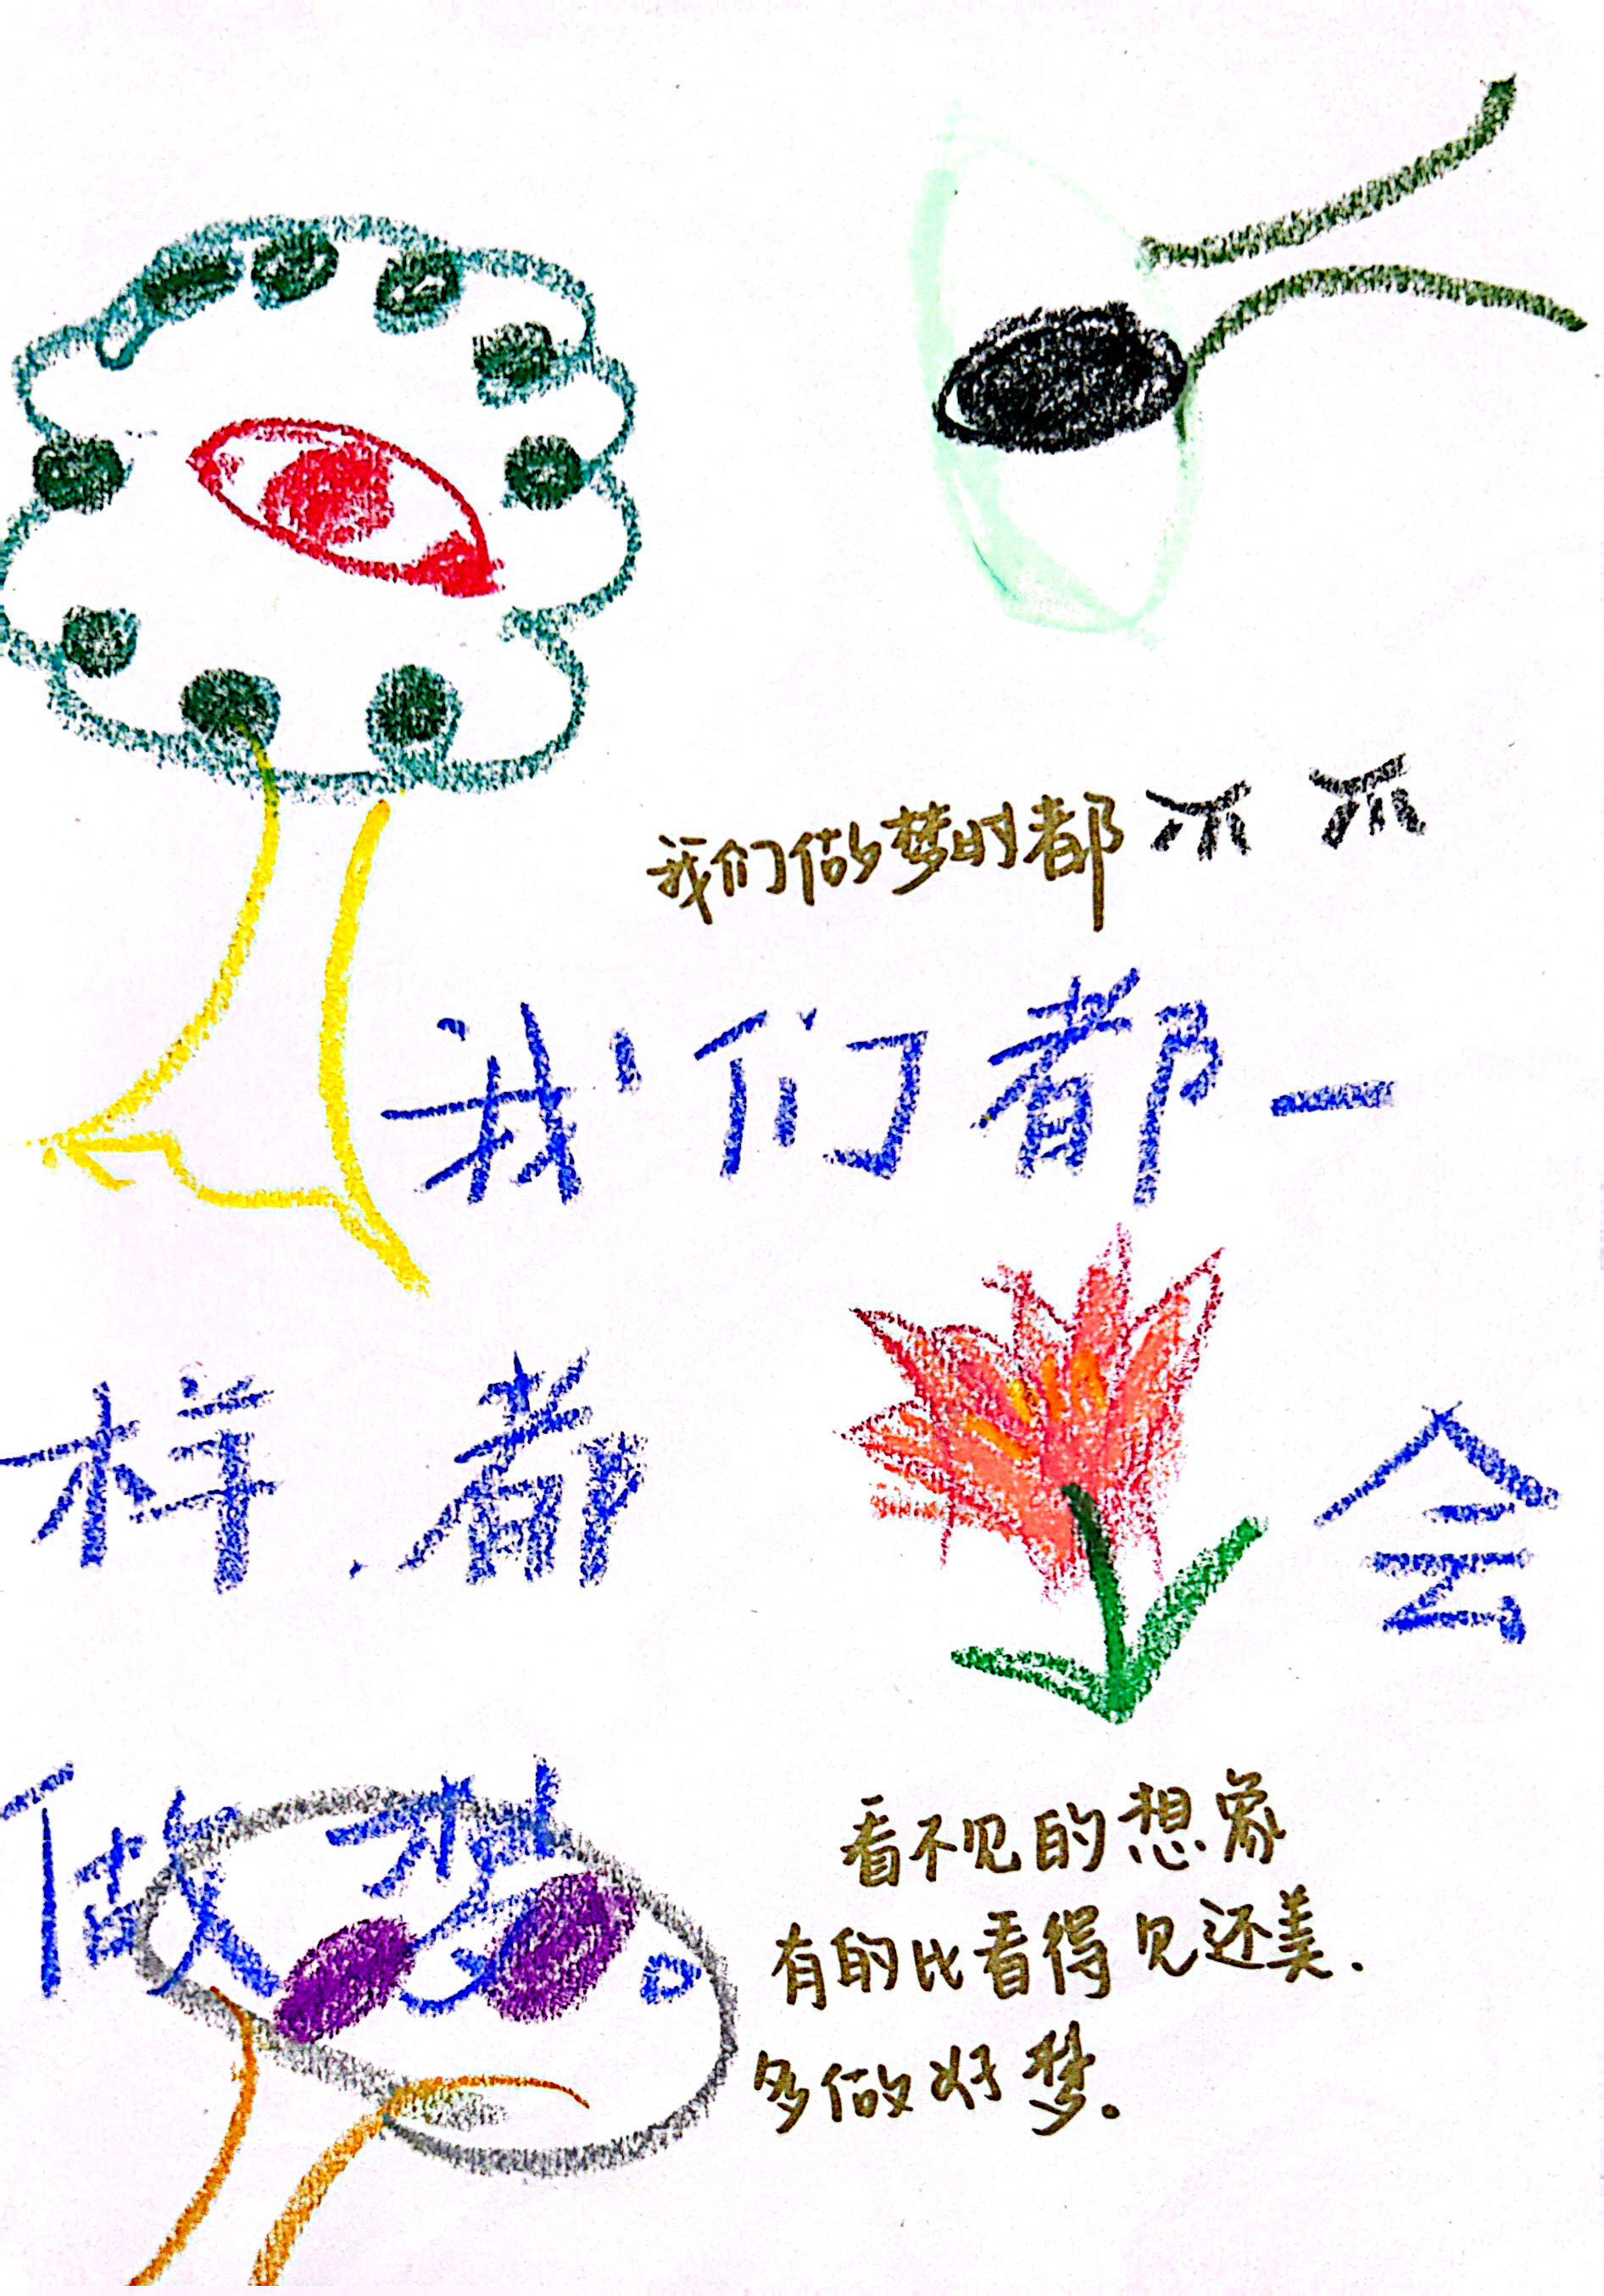 我们做梦时都
我们都一
样.都 会
做梦。
看不见的想象
有的比看得见还美.
多做好梦.